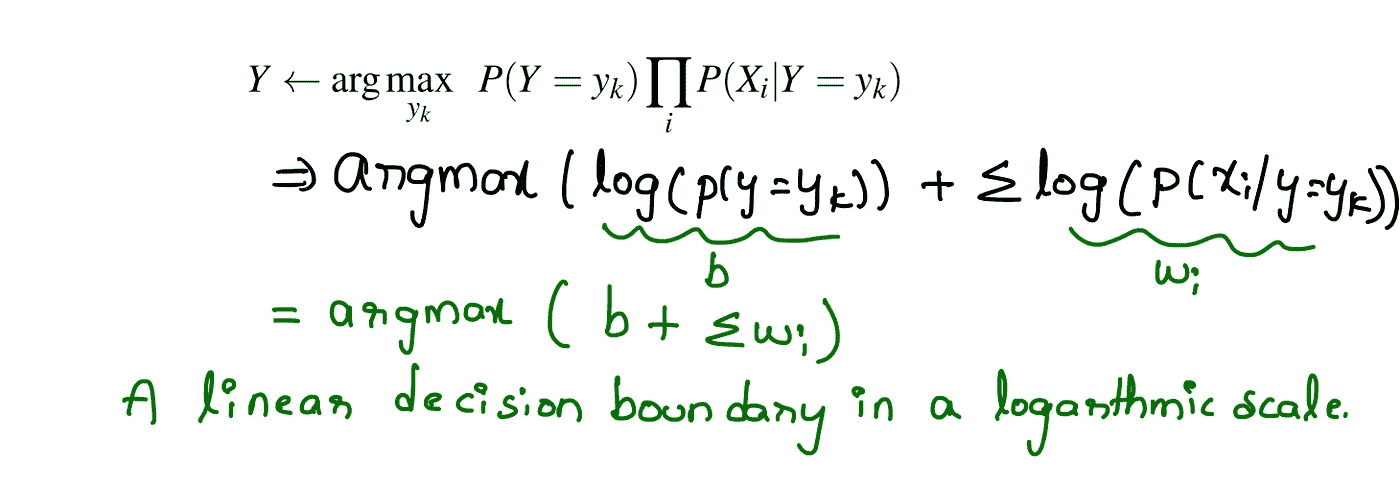 Y ← arg max P(Y = y_k) ∏ P(X_i|Y = y_k)
y_k i
⇒ argmax (log(p(y=y_k)) + Σ log(P(x_i/y=y_k))
b w_i
= argmax (b + Σ w_i)
A linear decision boundary in a logarthmic scale.